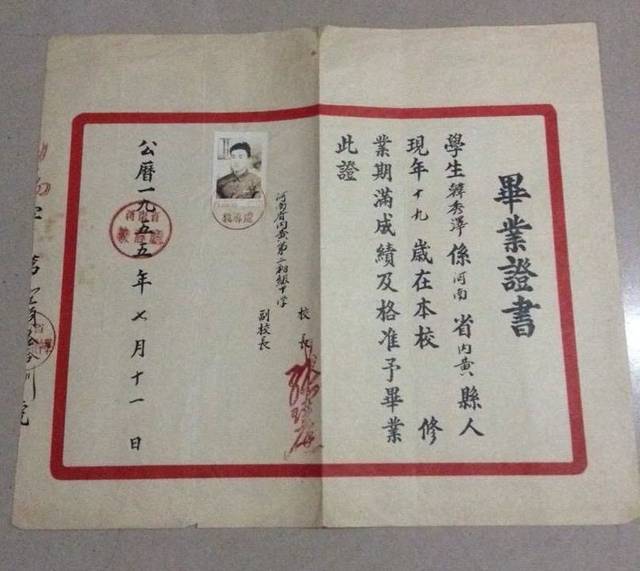 畢業證書
學生韓秀澤係河南省內黃縣人
現年十九歲在本校修
業期滿成績及格准予畢業
此證
校長
副校長
河南省內黃第二初級中学
公曆一九五五年七月十一日
河南省
教育廳